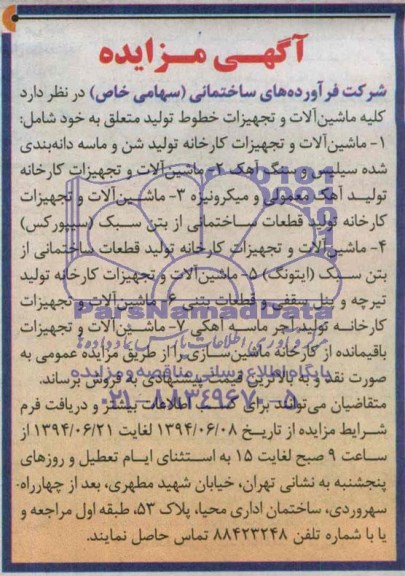 آگهـی مـزایده
شرکت فرآورده‌های ساختمانی (سهامی خاص) در نظر دارد
کلیه ماشین‌آلات و تجهیزات خطوط تولید متعلق به خود شامل:
۱- ماشین‌آلات و تجهیزات کارخانه تولید شن و ماسه دانه‌بندی
شده سیلیس و سنگ آهک ۲- ماشین‌آلات و تجهیزات کارخانه
تولیـد آهک معمولی و میکرونیزه ۳- ماشـین‌آلات و تجهیزات
کارخانه تولید قطعات ساختمانی از بتن سبک (سیپورکس)
۴- ماشین‌آلات و تجهیزات کارخانه تولید قطعات ساختمانی از
بتن سبک (ایتونگ) ۵- ماشین‌آلات و تجهیزات کارخانه تولید
تیرچه و پنل سقفی و قطعات بتنی ۶- ماشین‌آلات و تجهیزات
کارخانـه تولید آجر ماسـه آهکی ۷- ماشـین‌آلات و تجهیزات
باقیمانده از کارخانه ماشین‌سازی را از طریق مزایده عمومی به
صورت نقد و به بالاترین قیمت پیشنهادی به فروش برساند.
متقاضیان می‌توانند برای کسب اطلاعات بیشتر و دریافت فرم
شرایط مزایده از تاریخ ۱۳۹۴/۰۶/۰۸ لغایت ۱۳۹۴/۰۶/۲۱ از
ساعت ۹ صبح لغایت ۱۵ به استثنای ایـام تعطیل و روزهای
پنجشنبه به نشانی تهران، خیابان شهید مطهری، بعد از چهارراه-
سهروردی، ساختمان اداری محیا، پلاک ۵۳، طبقه اول مراجعه و
یا با شماره تلفن ۸۸۴۲۳۲۴۸ تماس حاصل نمایند.
ParsNamadData
مرکز فرآوری اطلاعات پارس نماد داده‌ها
پایگاه اطلاع رسانی مناقصه و مزایده
۰۲۱-۸۸۳۴۹۶۷۰-۵